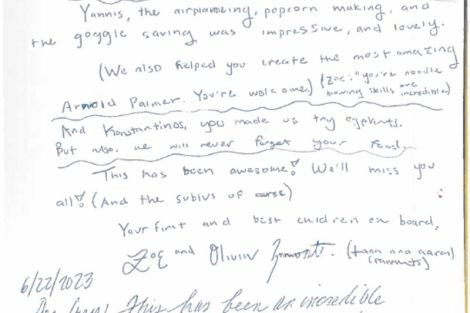 Yannis, the airplaneing, popcorn making, and
the goggle saving was impressive, and lovely.
(We also helped you create the most amazing
Arnold Palmer. You're welcome.) (Zoe: "you're noodle
blowing skills are
incredible)
And Konstantinos, you made us try eggplants.
But also. we will never forget your food.
This has been awesome! We'll miss you
all! (And the subius of curse)
Your first and best children on board,
Zoe and Olivia (tann ana aaren)
6/22/2023
This has been an incredible